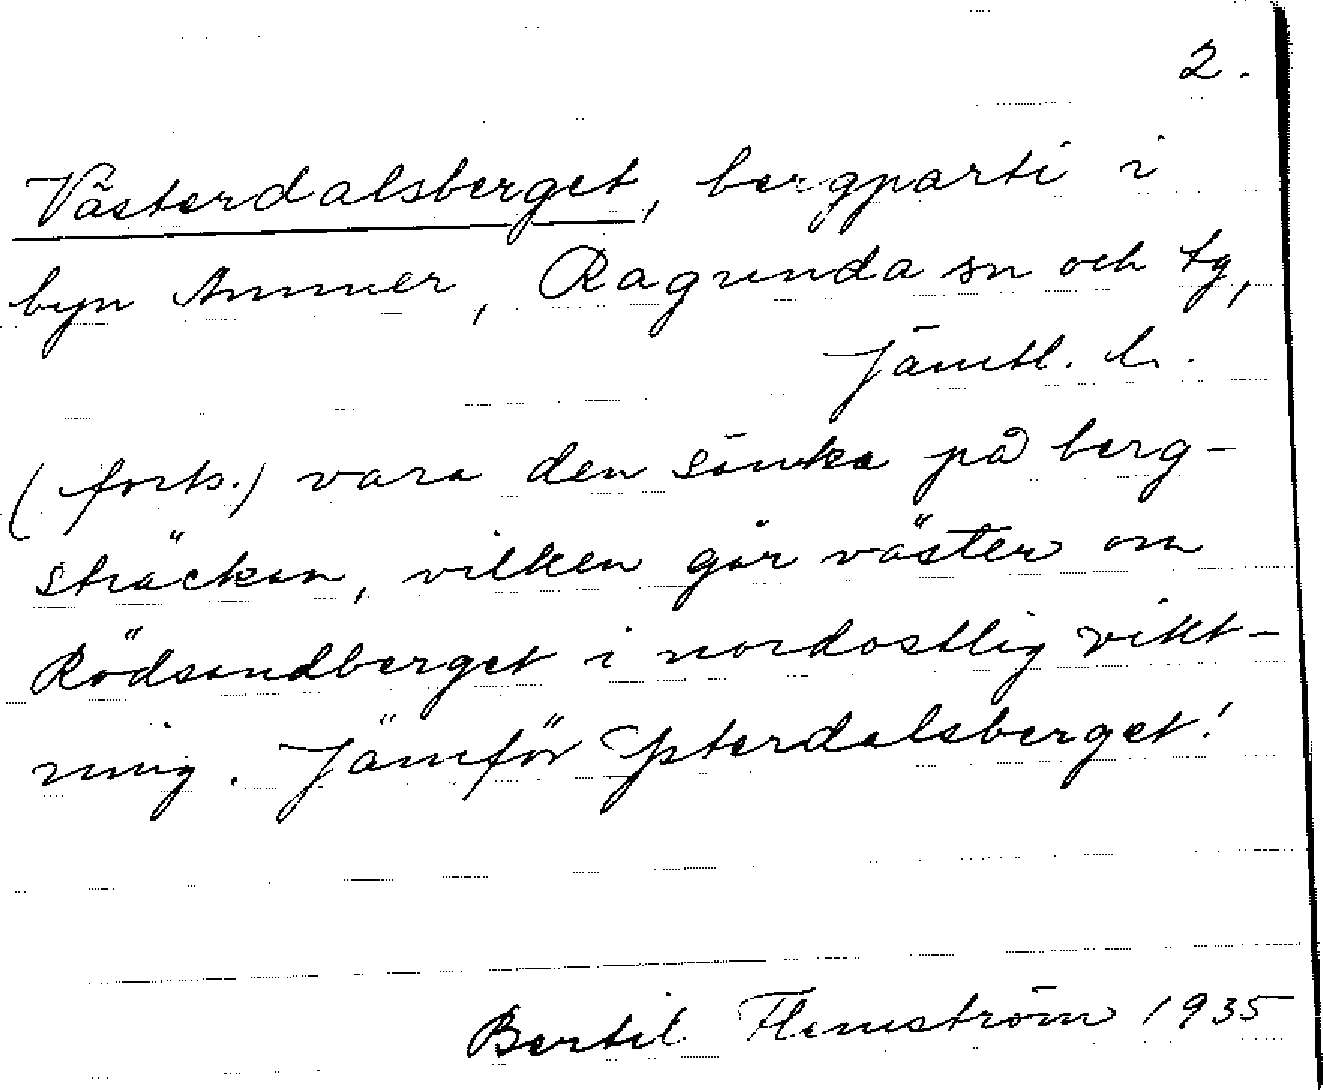 2.
Västerdalsberget, bergparti i
byn Ammer, Ragunda sn och tg,
Jämtl. l.
(forts.) vara den sänka på berg-
sträckan, vilken går väster om
Rödsandberget i nordostlig rikt-
ning. Jämför Ysterdalsberget!
Bertil Flemström 1935